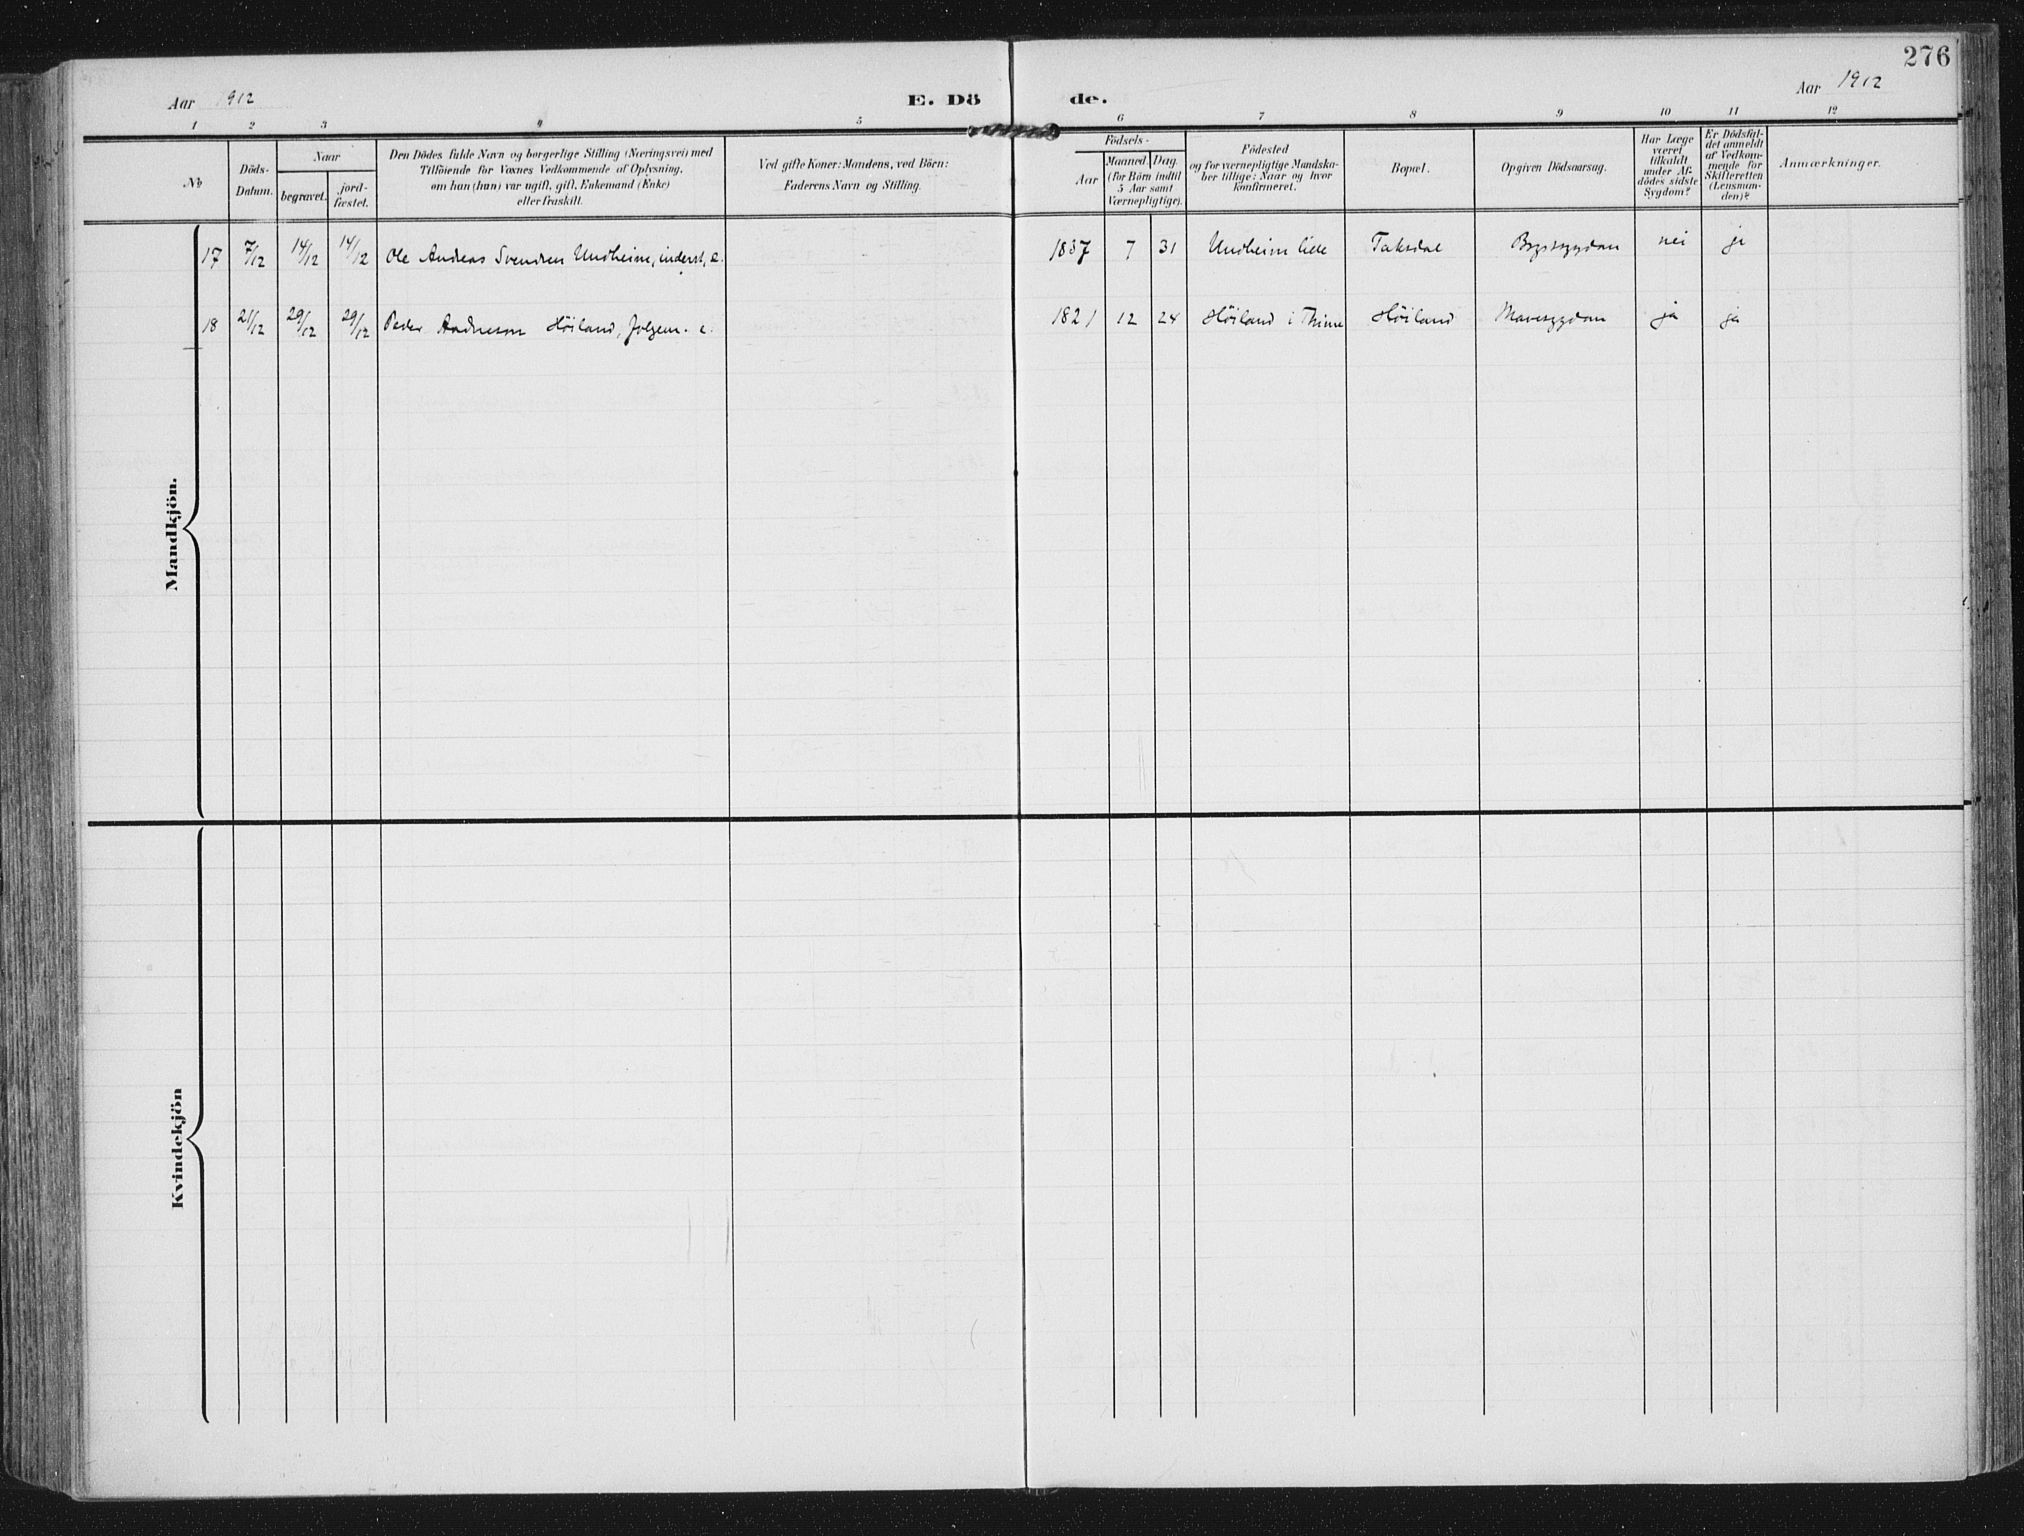 276
Aar 1912
E. Dö de.
Aar 1912
1 2 3 4 5 6 7 8 9 10 11 12
No
Döds-
Datum.
Naar
begravet.
jord-
fæstet.
Den Dödes fulde Navn og borgerlige Stilling (Næringsvei) med
Tilföiende for Voxnes Vedkommende af Oplysning,
om han (hun) var ugift, gift, Enkemand (Enke)
eller fraskilt.
Ved gifte Koner: Mandens, ved Börn:
Faderens Navn og Stilling.
Födsels-
Aar
Maaned. Dag.
(for Börn indtil
5 Aar samt
Værnepligtige).
Födested
og for værnepligtige Mandska-
ber tillige: Naar og hvor
konfirmeret.
Bopæl.
Opgiven Dödsaarsag.
Har Læge
været
tilkaldt
under Af-
dödes sidste
Sygdom?
Er Dödsfal-
det anmeldt
af Vedkom-
mende for
Skifteretten
(Lensman-
den)?
Anmærkninger.
17 7/12 14/12 14/12 Ole Andreas Svendsen Undheim, inderst, e. 1837 7 31 Undheim lille Taksdal Brystsygdom nei ja
18 21/12 29/12 29/12 Peder Aadneson Höiland, folgem. e. 1821 12 24 Höiland i Thime Höiland Mavesygdom ja ja
Mandkjön.
Kvindekjön